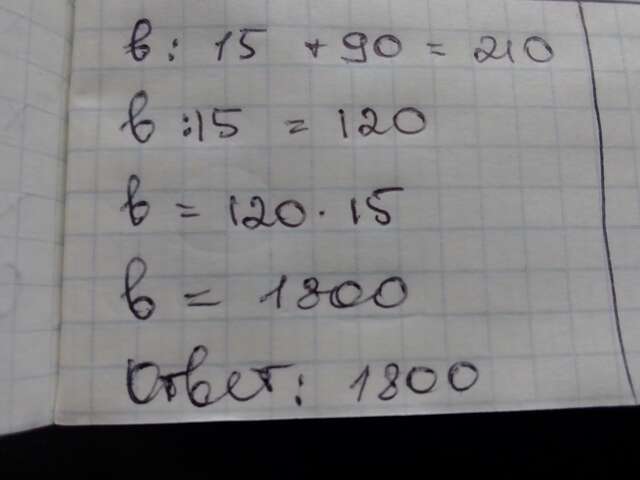 в : 15 + 90 = 210
в : 15 = 120
в = 120 · 15
в = 1800
Ответ: 1800